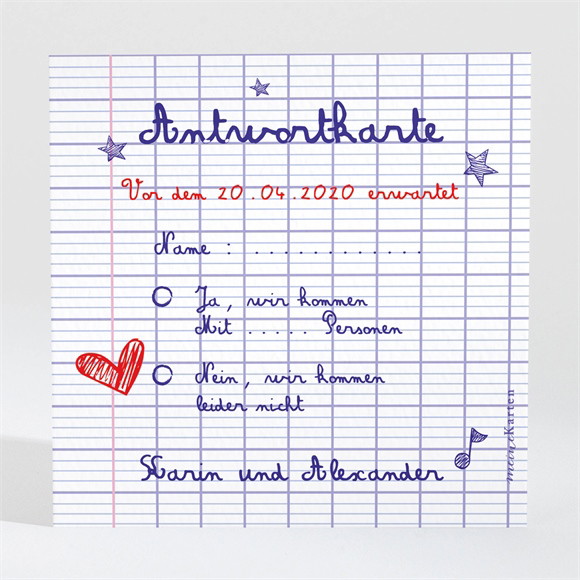 Antwortkarte
Vor dem 20.04.2020 erwartet
Name : . . . . . . . . . . . . .
Ja, wir kommen
Mit . . . . . Personen
Nein, wir kommen
leider nicht
Karin und Alexander
meineKarten